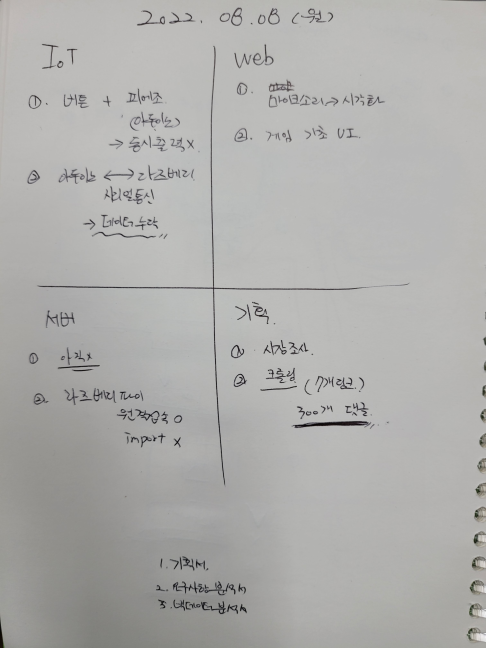 2022. 08.08 (월)
IoT
①. 버튼 + 피에조
(아두이노)
→ 동시출력 x
② 아두이노 ↔ 라즈베리
시리얼통신
→ 데이터 누락
Web
①.
마이크소리 → 시각화
②. 게임 기초 UI
서버
① 아직x
②. 라즈베리 파이
원격접속 o
import x
기획.
① 시장조사.
② 크롤링 (7개링크)
300개 댓글
1. 기획서.
2. 요구사항 분석서
3. 빅데이터 분석서